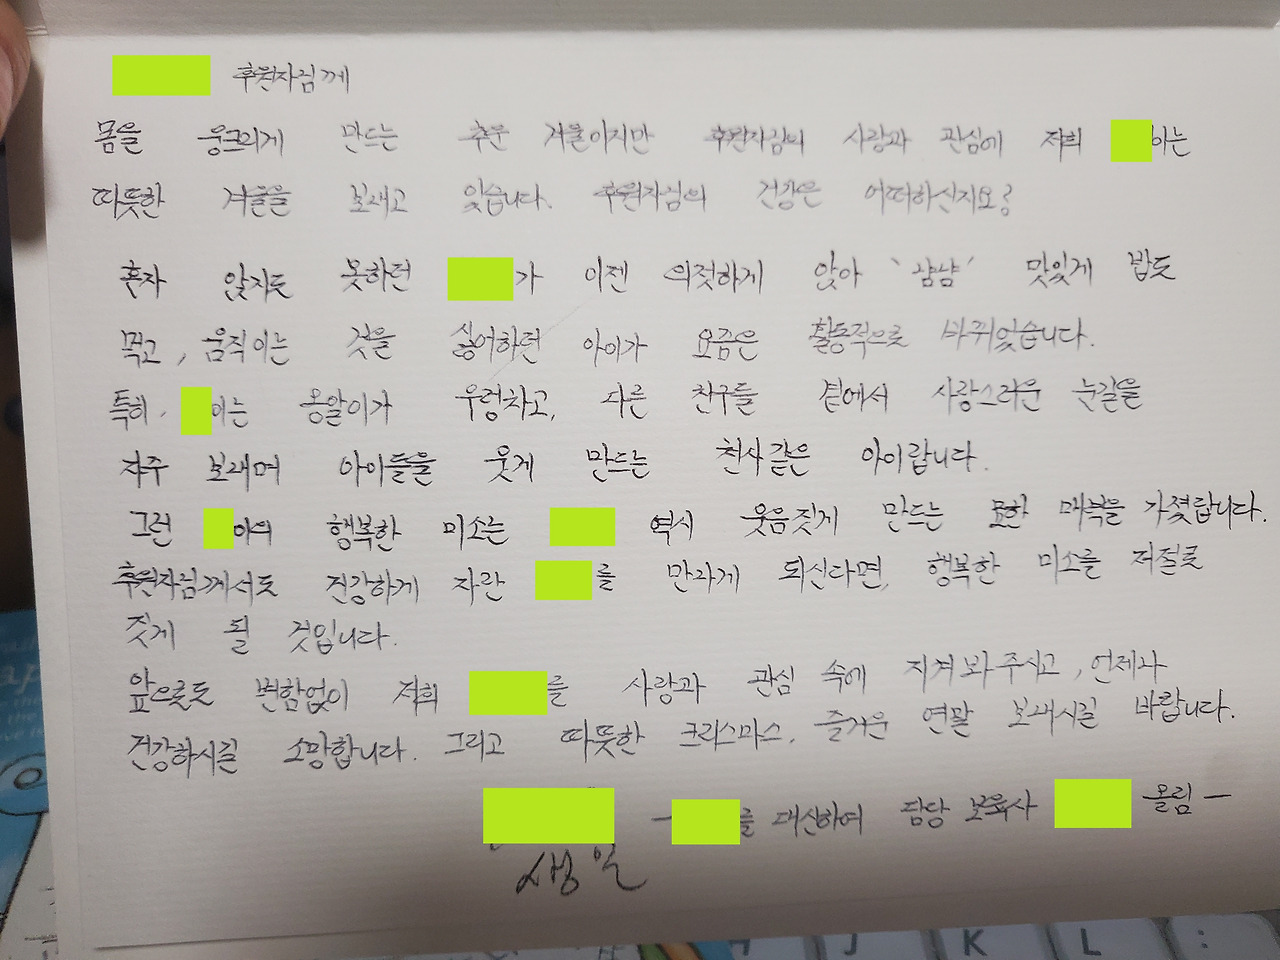 후원자님께
몸을 웅크리게 만드는 추운 겨울이지만 후원자님의 사랑과 관심에 저희 이는
따뜻한 겨울을 보내고 있습니다. 후원자님의 건강은 어떠하신지요?
혼자 앉지도 못하던 가 이젠 의젓하게 앉아 '냠냠' 맛있게 밥도
먹고, 움직이는 것을 싫어하던 아이가 요즘은 활동적으로 바뀌었습니다.
특히, 이는 옹알이가 우렁차고, 다른 친구들 곁에서 사랑스러운 눈길을
자주 보내며 아이들을 웃게 만드는 천사같은 아이랍니다.
그런 이의 행복한 미소는 역시 웃음짓게 만드는 묘한 매력을 가졌랍니다.
후원자님께서도 건강하게 자란 를 만나게 되신다면, 행복한 미소를 저절로
짓게 될 것입니다.
앞으로도 변함없이 저희 를 사랑과 관심 속에 지켜봐주시고, 언제나
건강하시길 소망합니다. 그리고 따뜻한 크리스마스, 즐거운 연말 보내시길 바랍니다.
- 를 대신하여 담당 보육사 올림 -
생일
J K L :